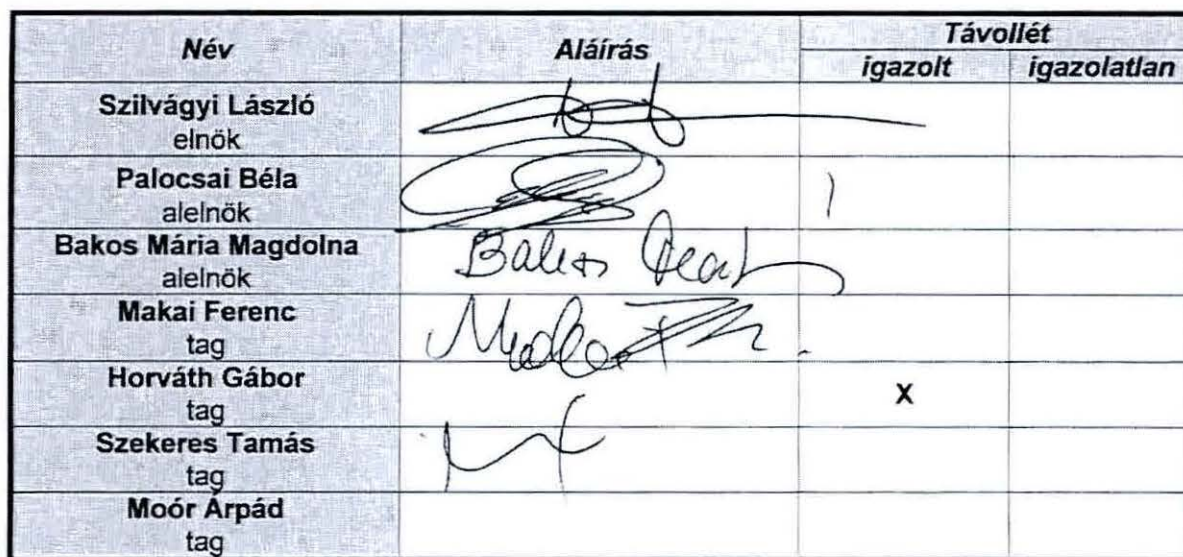 Név Aláírás Távollét
igazolt igazolatlan
Szilvágyi László
elnök
Palocsai Béla
alelnök
Bakos Mária Magdolna
alelnök
Bakos
Makai Ferenc
tag
Horváth Gábor
tag
X
Szekeres Tamás
tag
Moór Árpád
tag